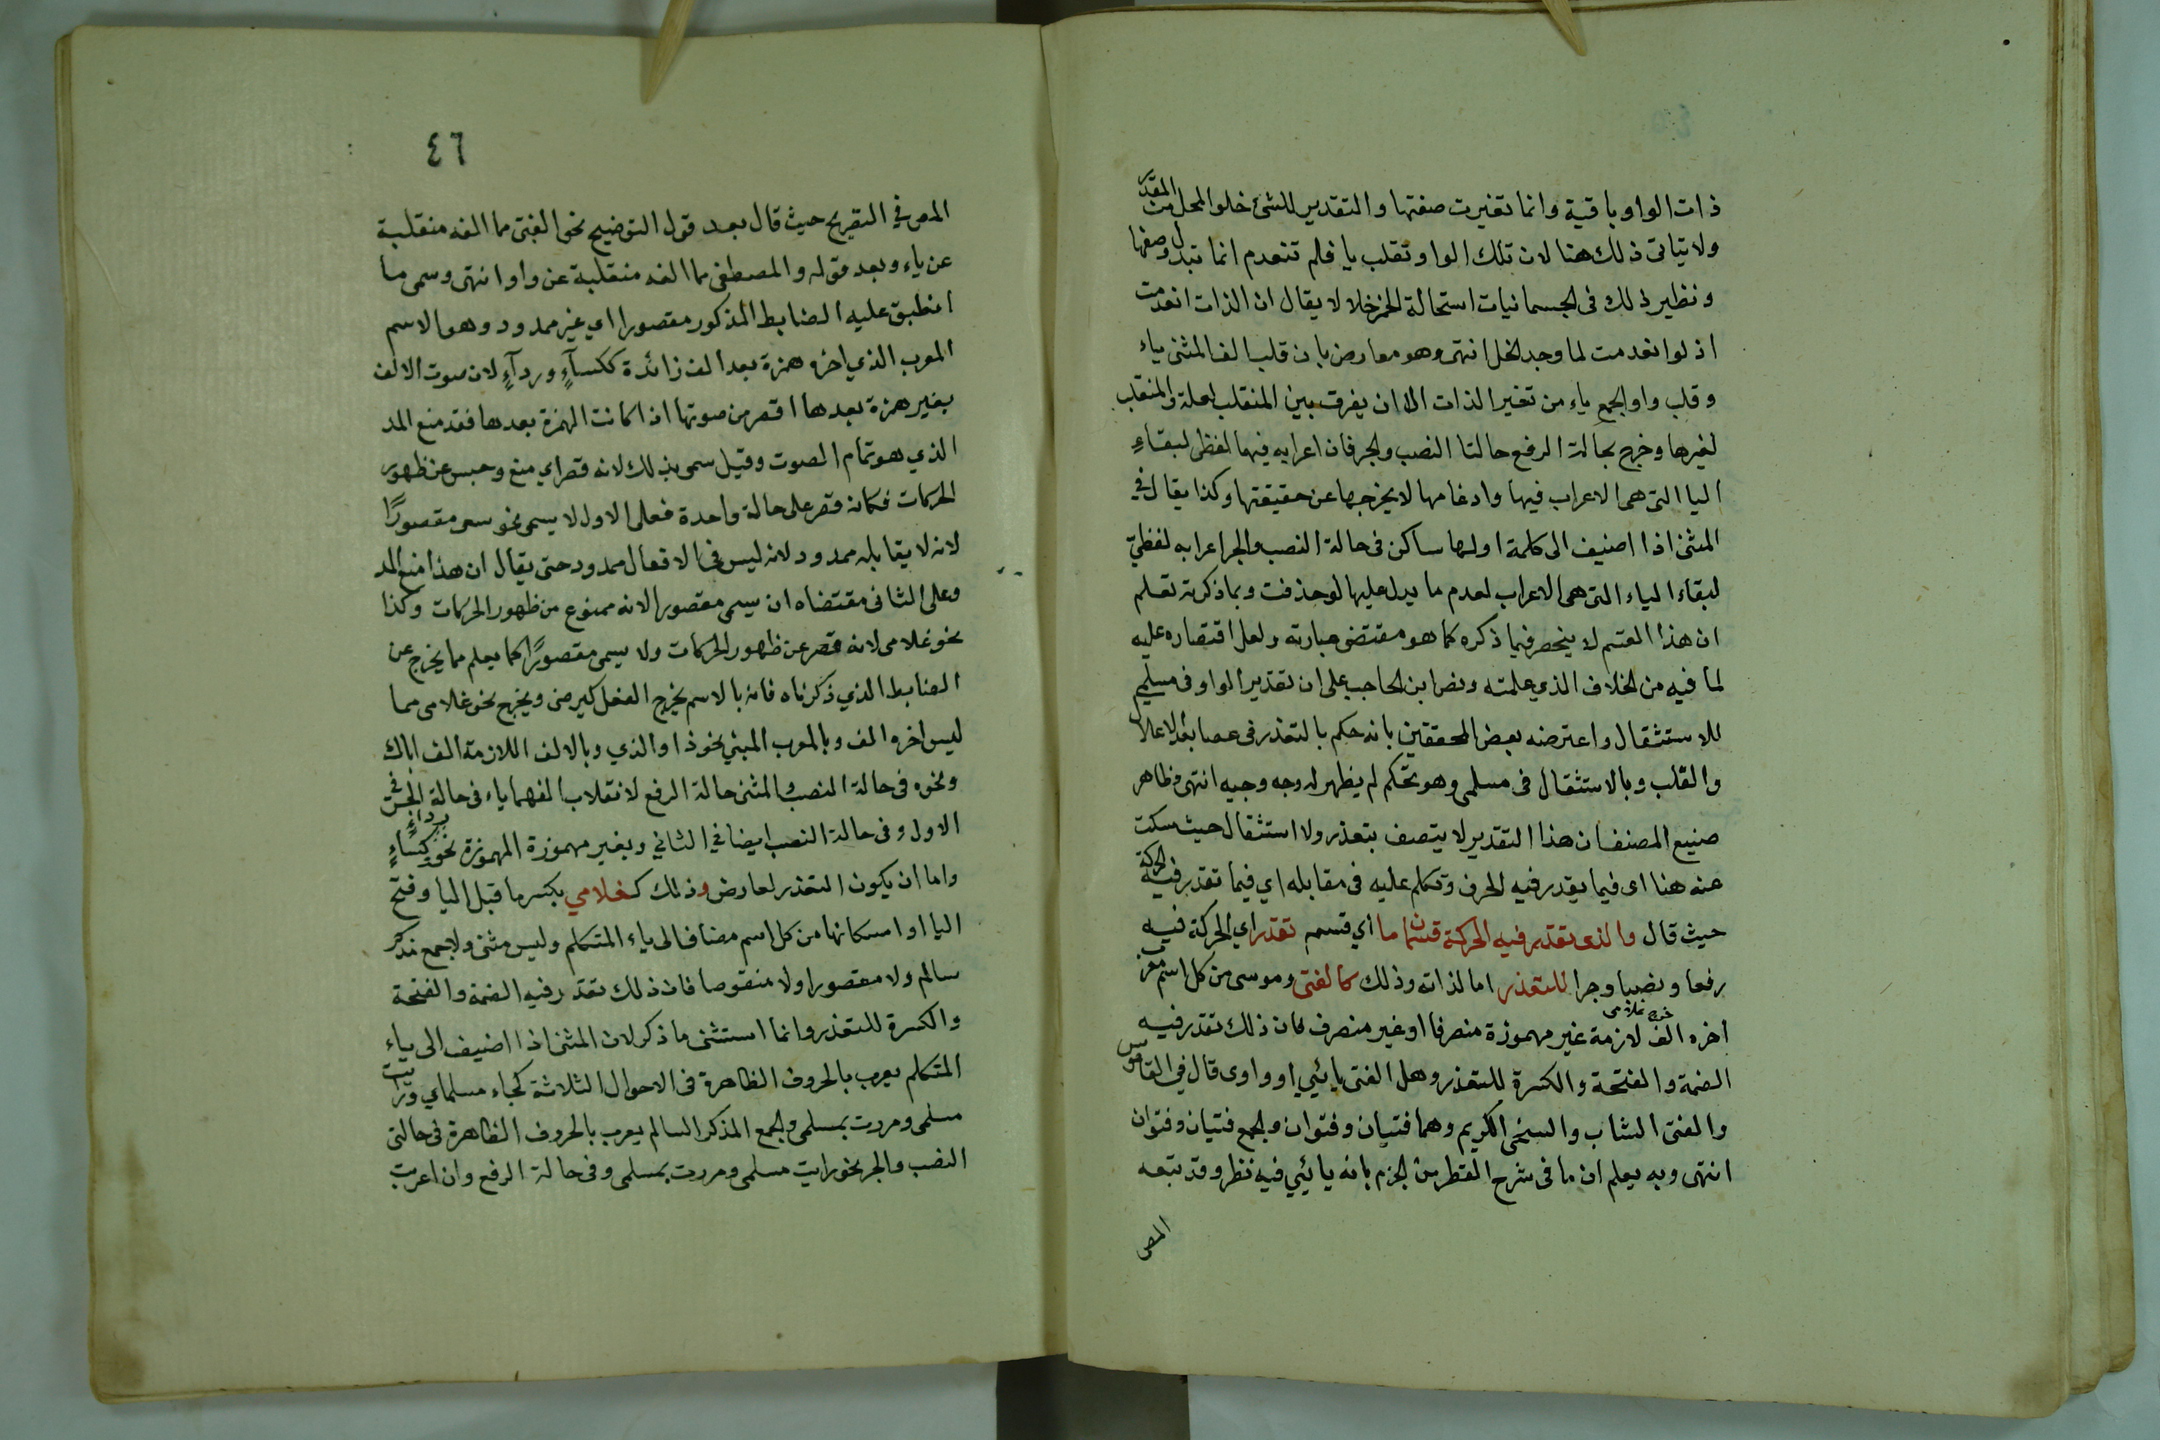 ذات الواو باقية وانما تغيرت صفتها والتقدير للشئ خلو المحل من المقدر
ولا يتاتى ذلك هنا لان تلك الواو تقلب يا فلم تنعدم انما تبدل وصفها
ونظير ذلك فى الجسمانيات استحالة الخمر خلا لا يقال ان الذات انعدمت
اذ لو انعدمت لما وجد الخل انتهى وهو معارض بان قلب الف المثنى ياء
وقلب واو الجمع ياء من تغير الذات الا ان يفرق بين المنقلب لعلة والمنقلب
لغيرها وخرج بحالة الرفع حالتا النصب والجر فان اعرابه فيهما لفظى لبقاء
اليا التى هى الاعراب فيها وادغامها لا يخرجها عن حقيقتها وكذا يقال فى
المثنى اذا اضيف الى كلمة اولها ساكن فى حالة النصب والجر اعرابه لفظيّ
لبقاء الياء التى هى الاعراب لعدم ما يدل عليها لو حذفت وبما ذكرته تعلم
ان هذا القسم لا ينحصر فيما ذكره كما هو مقتضى عبارته ولعل اقتصاره عليه
لما فيه من الخلاف الذي علمته ونص ابن الحاجب على ان تقدير الواو فى مسلمي
للاستثقال واعترضه بعض المحققين بانه حكم بالتعذر فى عصا بعد الاعلال
والقلب وبالاستثقال فى مسلمى وهو تحكم لم يظهر له وجه وجيه انتهى وظاهر
صنيع المصنف ان هذا التقدير لا يتصف بتعذر ولا استثقال حيث سكت
عنه هنا اى فيما يقدر فيه الحرف وتكلم عليه فى مقابله اي فيما تقدر فيه الحركة
حيث قال والذى تقدر فيه الحركة قسمان ما اي قسم تقدر اي الحركة فيه
رفعا ونصبا وجرا للتعذر اما لذاته وذلك كالفتى وموسى من كل اسم معرب
خرج غلامى
اخره الف لازمة غير مهموزة منصرفا او غير منصرف فان ذلك تقدر فيه
الضمة والفتحة والكسرة للتعذر وهل الفتى يائيي او واوى قال في القاموس
والفتى الشاب والسخى الكريم وهما فتيان وفتوان والجمع فتيان وفتوان
انتهى وبه يعلم ان ما فى شرح القطر من الجزم بانه يائيي فيه نظر وقد تبعه
المص
٤٦
المص في التصريح حيث قال بعد قول التوضيح نحو الفتى مما الفه منقلبة
عن ياء وبعد قوله والمصطفى مما الفه منقلبة عن واو انتهى وسمى ما
انطبق عليه الضابط المذكور مقصورا اي غير ممدود وهو الاسم
المعرب الذي اخره همزة بعد الف زائدة ككساءٍ ورداءٍ لان صوت الالف
بغير همزة بعدها اقصر من صوتها اذا كانت الهمزة بعدها فقد منع المد
الذي هو تمام الصوت وقيل سمى بذلك لانه قصر اي منع وحبس عن ظهور
الحركات فكانه قصر على حالة واحدة فعلى الاول لا يسمى نحو سعى مقصورًا
لانه لا يقابله ممدود لانه ليس فى الافعال ممدود حتى يقال ان هذا منع المد
وعلى الثانى مقتضاه ان يسمى مقصورا لانه ممنوع من ظهور الحركات وكذا
نحو غلامى لانه قصر عن ظهور الحركات ولا يسمى مقصورًا كما يعلم مما يخرج عن
الضابط الذي ذكرناه فانه بالاسم يخرج الفعل كيرضى ويخرج نحو غلامى مما
ليس اخره الف وبالمعرب المبني نحو ذا والذي وبالالف اللازمة الف اباك
ونحوه فى حالة النصب والمثنى حالة الرفع لانقلاب الفهما ياء فى حالة الجر فى
الاول وفى حالة النصب ايضا في الثاني وبغير مهموزة المهموزة نحو كساءٍ ورداءٍ
واما ان يكون التعذر لعارض وذلك كغلامي بكسر ما قبل اليا وفتح
اليا او اسكانها من كل اسم مضاف الى ياء المتكلم وليس مثنى ولا جمع مذكر
سالم ولا مقصورا ولا منقوصا فان ذلك تقدر فيه الضمة والفتحة
والكسرة للتعذر وانما استثنى ما ذكر لان المثنى اذا اضيف الى ياء
المتكلم يعرب بالحروف الظاهرة فى الاحوال الثلاثة كجاء مسلماي ورايت
مسلمى ومررت بمسلمى والجمع المذكر السالم يعرب بالحروف الظاهرة فى حالتى
النصب والجر نحو رايت مسلمى ومررت بمسلمى وفى حالة الرفع وان اعرب